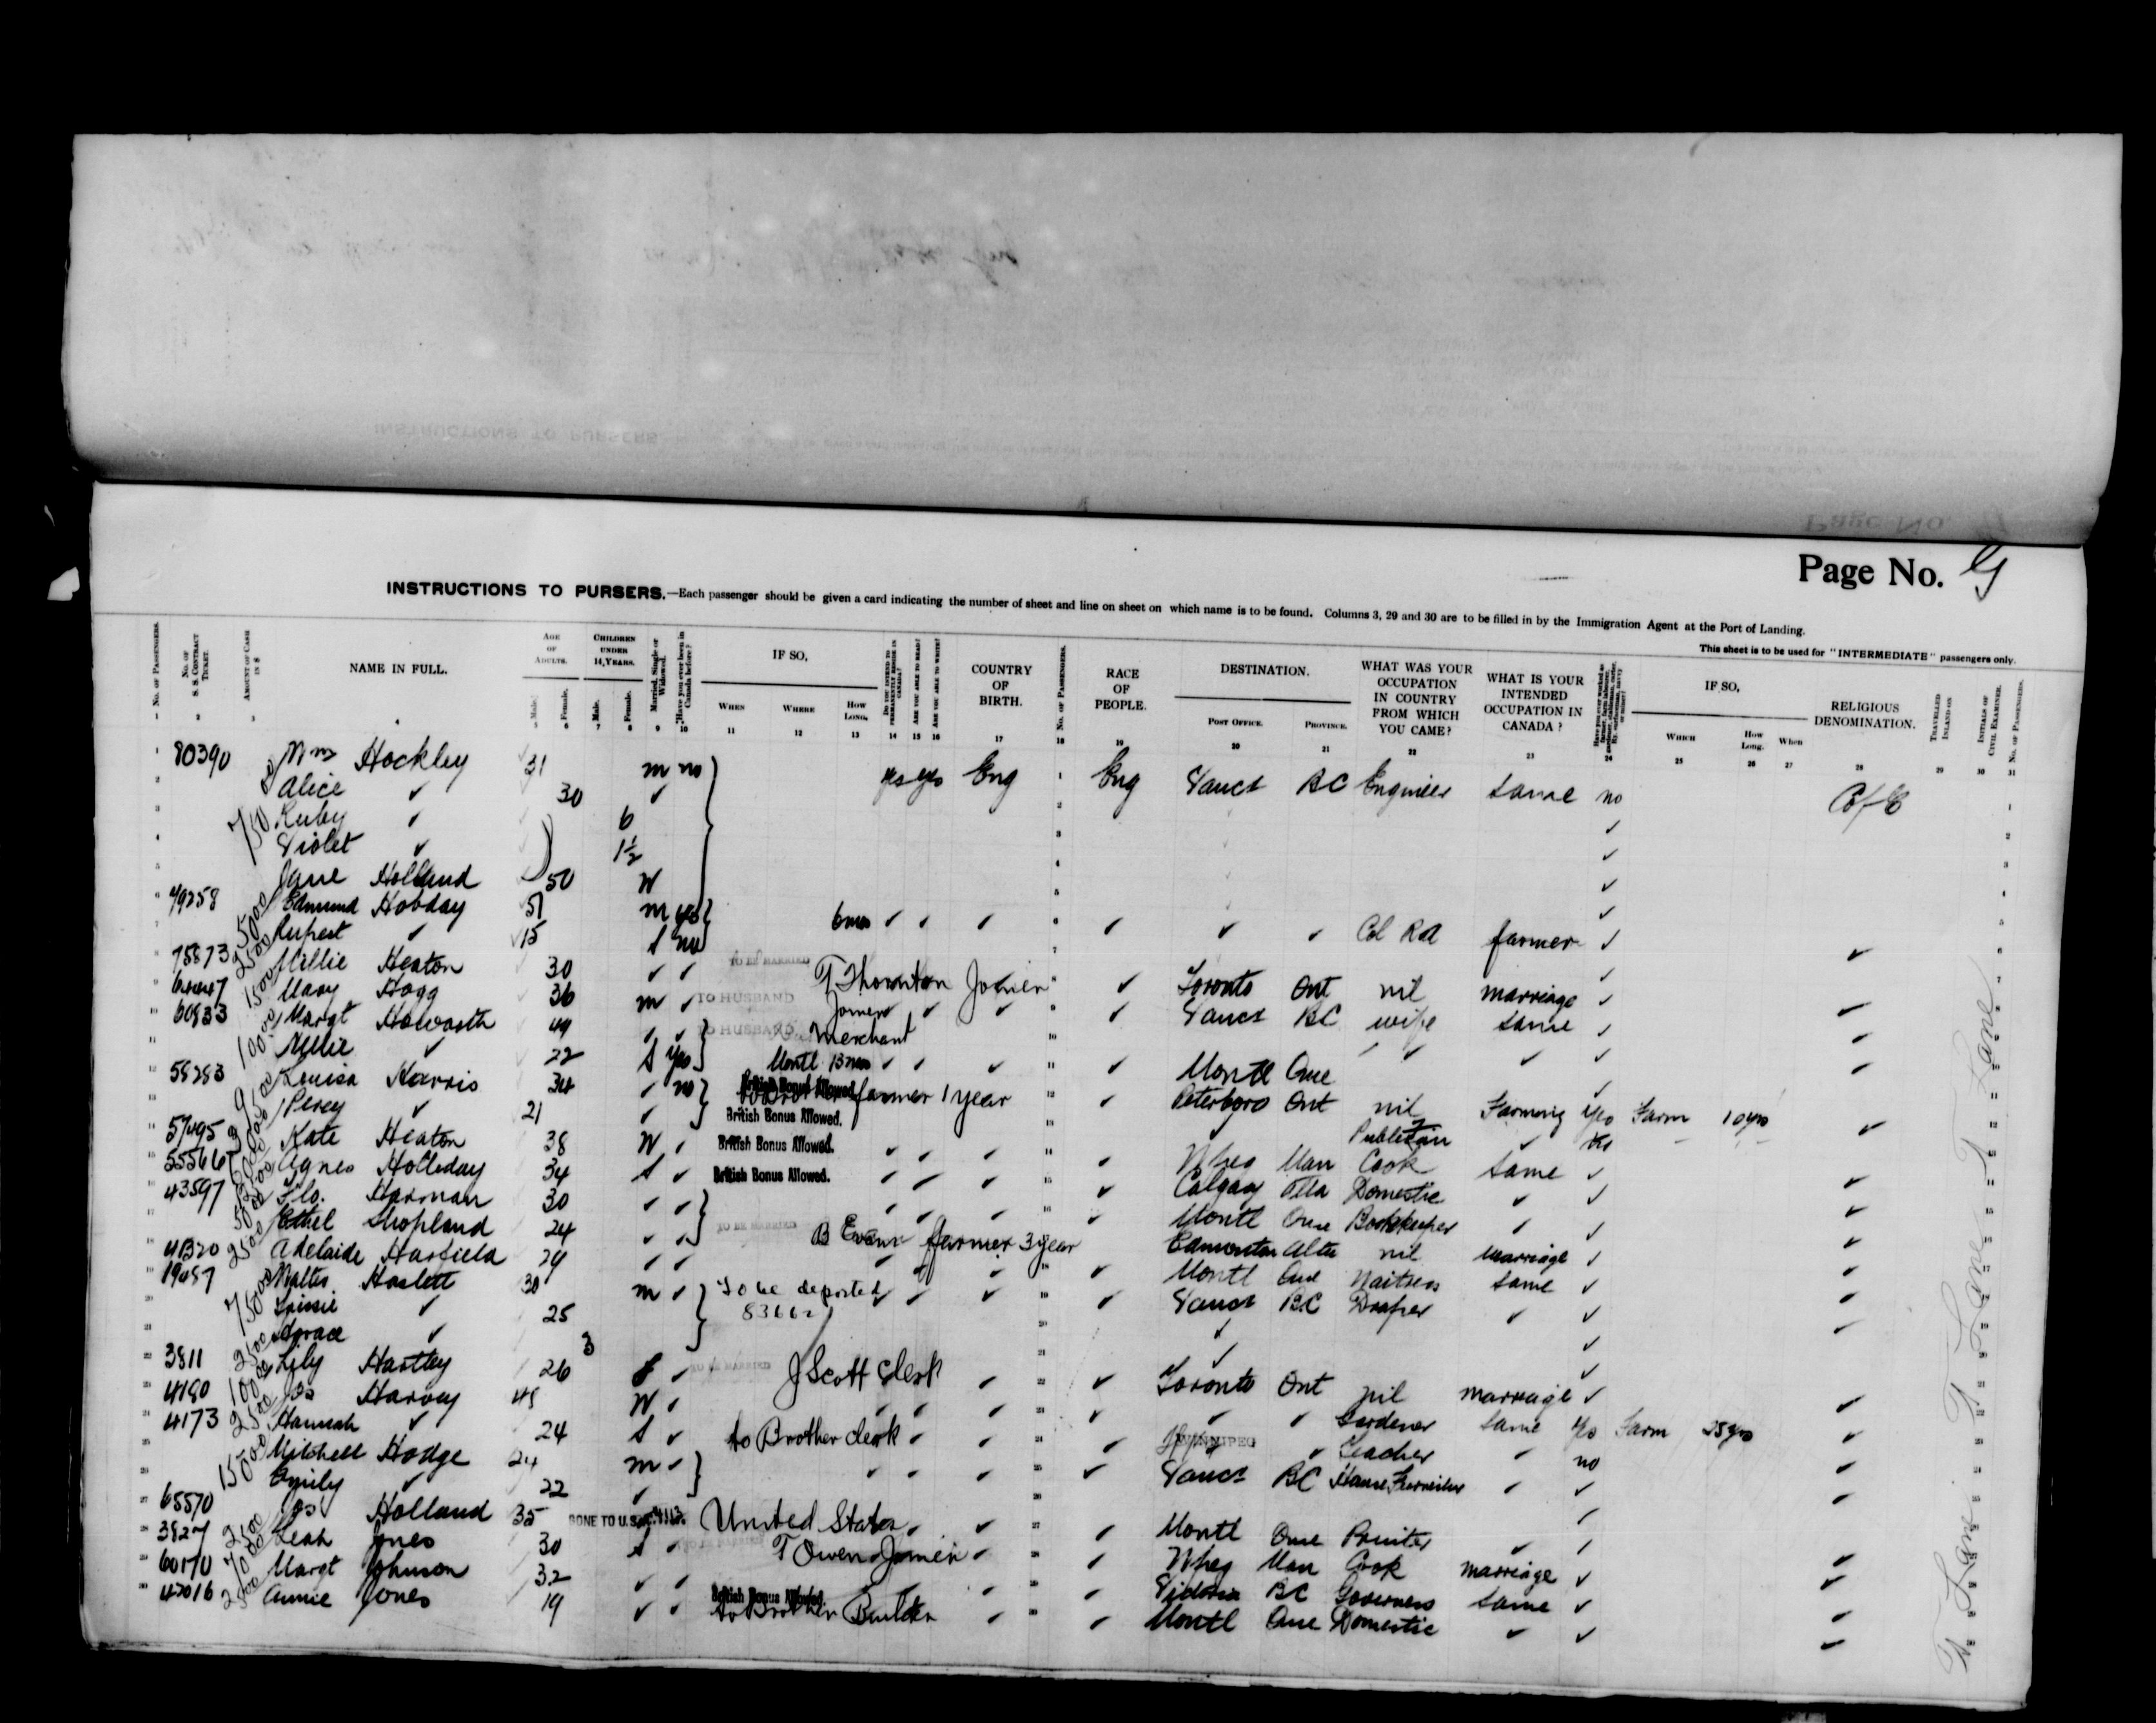 Page No. 9
INSTRUCTIONS TO PURSERS.—Each passenger should be given a card indicating the number of sheet and line on sheet on which name is to be found. Columns 3, 29 and 30 are to be filled in by the Immigration Agent at the Port of Landing.
This sheet is to be used for "INTERMEDIATE" passengers only.
No. of Passengers. No. of S. S. Contract Ticket. Amount of Cash in $ NAME IN FULL. Age of Adults. Male. Female. Children under 14 Years. Male. Female. Married, Single or Widowed. Have you ever been in Canada before? IF SO, When Where How Long. Do you intend to permanently reside in Canada? Are you able to read? Are you able to write? COUNTRY OF BIRTH. No. of Passengers. RACE OF PEOPLE. DESTINATION. Post Office. Province. WHAT WAS YOUR OCCUPATION IN COUNTRY FROM WHICH YOU CAME? WHAT IS YOUR INTENDED OCCUPATION IN CANADA? IF SO, Which How Long. When RELIGIOUS DENOMINATION. Travelled Inland on Initials of Civil Examiner. No. of Passengers.
1 2 3 4 5 6 7 8 9 10 11 12 13 14 15 16 17 18 19 20 21 22 23 24 25 26 27 28 29 30 31
1 80390 Wm Hockley 31 m no yes yes Eng 1 Eng Vancr BC Engineer Same no C of E
2 Alice ✓ 30 ✓
3 750 Ruby ✓ 6
4 Violet ✓ 1½
5 Jane Holland 50 W
6 49258 5000 Edmund Hobday 51 m yes 6 mos ✓ ✓ ✓ ✓ ✓ ✓ Col Rd farmer ✓
7 Rupert ✓ 15 S no
8 75873 2500 Millie Heaton 30 ✓ ✓ TO BE MARRIED T Thornton Joiner ✓ Toronto Ont nil marriage ✓
9 1500 Mary Hogg 36 m ✓ TO HUSBAND Joiner ✓ ✓ ✓ Vancr BC wife Same ✓
10 60833 Margt Howorth 49 ✓ ✓ TO HUSBAND Merchant ✓ ✓ ✓ ✓
11 Nellie ✓ 22 S yes Montl 13 mos ✓ ✓ ✓ ✓ Montl Que
12 58283 Louisa Harris 34 ✓ no British Bonus Allowed. to Brother farmer 1 year ✓ Peterboro Ont nil Farming yes Farm 10 yrs
13 Percy ✓ 21 ✓ British Bonus Allowed.
14 57495 Kate Heaton 38 W ✓ British Bonus Allowed. ✓ ✓ ✓ ✓ Wpeg Man Cook Same ✓
15 Agnes Holliday 34 S ✓ British Bonus Allowed. ✓ ✓ ✓ ✓ Calgary Alta Domestic ✓ ✓
16 43597 5000 Flo. Harman 30 ✓ ✓ ✓ ✓ ✓ ✓ Montl Que Bookkeeper ✓ ✓
17 Ethel Shopland 24 ✓ ✓ TO BE MARRIED B Evans farmer 3 year Edmonton Alta nil marriage ✓
18 2500 Adelaide Harfield 29 ✓ ✓ ✓ ✓ ✓ ✓ Montl Que Waitress Same ✓
19 19057 Walter Haslett 30 m ✓ To be deported ✓ ✓ ✓ ✓ Vancr BC Draper ✓ ✓
20 7500 ✓ 25 83662
21 ✓ 3
22 3811 2500 Lily Hartley 26 S ✓ TO BE MARRIED J Scott Clerk ✓ ✓ Toronto Ont nil marriage ✓
23 4180 Jas Harvey 48 W ✓ ✓ ✓ ✓ ✓ ✓ ✓ Gardener Same yes Farm 25 yrs
24 4173 2500 Hannah ✓ 24 S ✓ to Brother clerk ✓ ✓ ✓ WINNIPEG ✓ Teacher ✓ no
25 Mitchell Hodge 24 m ✓ ✓ ✓ ✓ ✓ Vancr BC House Furnisher ✓ ✓
26 Emily ✓ 22 ✓
27 65570 Jas Holland 35 GONE TO U.S.A. United States ✓ ✓ ✓ Montl Que Painter ✓ ✓
28 3827 Leah Jones 30 S ✓ TO BE MARRIED T Owen Joiner ✓ ✓ Wpeg Man Cook marriage ✓
29 60170 Margt Johnson 32 ✓ ✓ ✓ ✓ ✓ Victoria BC Governess Same ✓
30 42016 2500 Annie Jones 19 ✓ ✓ British Bonus Allowed. to Brother Builder ✓ ✓ Montl Que Domestic ✓ ✓